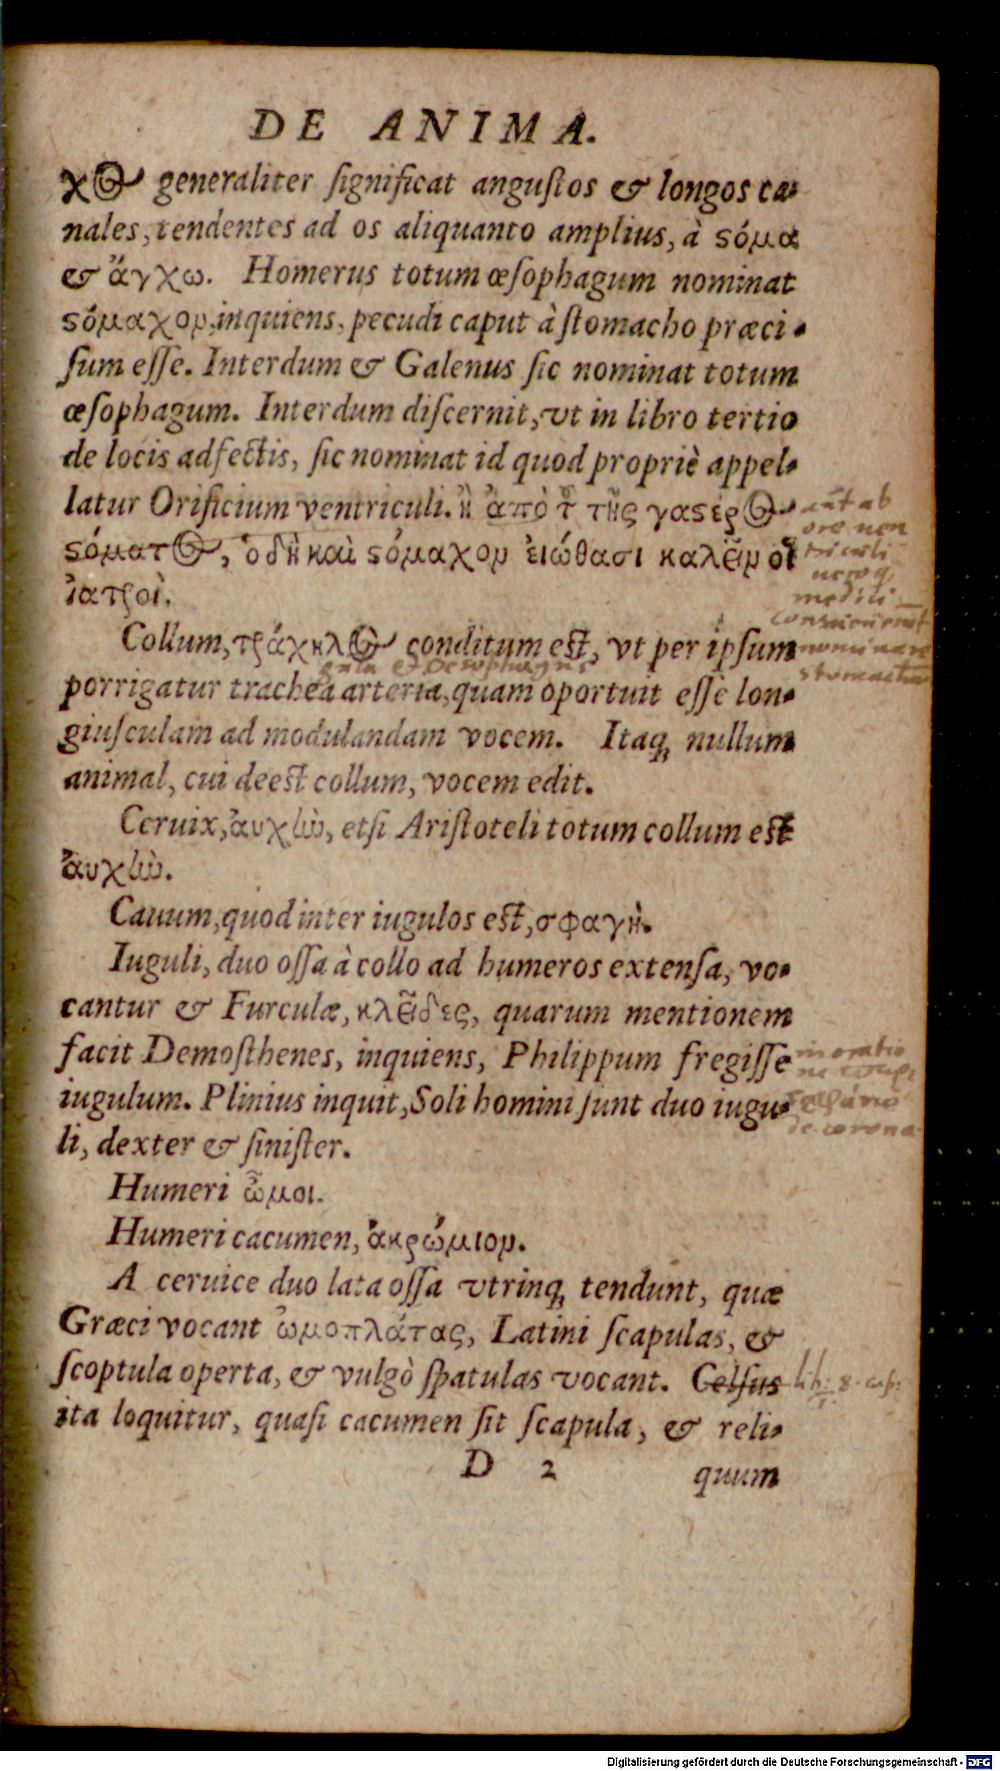 DE ANIMA.
χος generaliter ſignificat anguſtos & longos ca-
nales, tendentes ad os aliquanto amplius, à ϛόμα
& ἄγχω. Homerus totum œſophagum nominat
ϛόμαχον, inquiens, pecudi caput à ſtomacho præci-
ſum eſſe. Interdum & Galenus ſic nominat totum
œſophagum. Interdum diſcernit, vt in libro tertio
de locis adfectis, ſic nominat id quod propriè appel-
latur Orificium ventriculi. ἢ ἀπὸ τοῦ τῆς γαϛέρος
ϛόματος, ὃ δὴ καὶ ϛόμαχον εἰώθασι καλεῖν οἱ
ἰατροὶ.
aūt ab
ore ven
triculi
medici
consueuerūt
nominare
stomachū
Collum, τράχηλος conditum eſt, vt per ipſum
gula et oesophagus
porrigatur trachea arteria, quam oportuit eſſe lon-
giuſculam ad modulandam vocem. Itaq; nullum
animal, cui deeſt collum, vocem edit.
Ceruix, ἀυχὼ, etſi Ariſtoteli totum collum eſt
ἀυχὼ.
Cauum, quod inter iugulos eſt, σφαγὴ.
Iuguli, duo oſſa à collo ad humeros extenſa, vo-
cantur & Furculæ, κλεῖδες, quarum mentionem
facit Demoſthenes, inquiens, Philippum fregiſſe
iugulum. Plinius inquit, Soli homini ſunt duo iugu-
li, dexter & ſiniſter.
in oratio
de corona
Humeri ὦμοι.
Humeri cacumen, ἀκρώμιον.
A ceruice duo lata oſſa vtrinq; tendunt, quæ
Græci vocant ὠμοπλάτας, Latini ſcapulas, &
ſcoptula operta, & vulgò ſpatulas vocant. Celſus
lib: 8. cap:
ita loquitur, quaſi cacumen ſit ſcapula, & reli-
D 2 quum
Digitalisierung gefördert durch die Deutsche Forschungsgemeinschaft - DFG